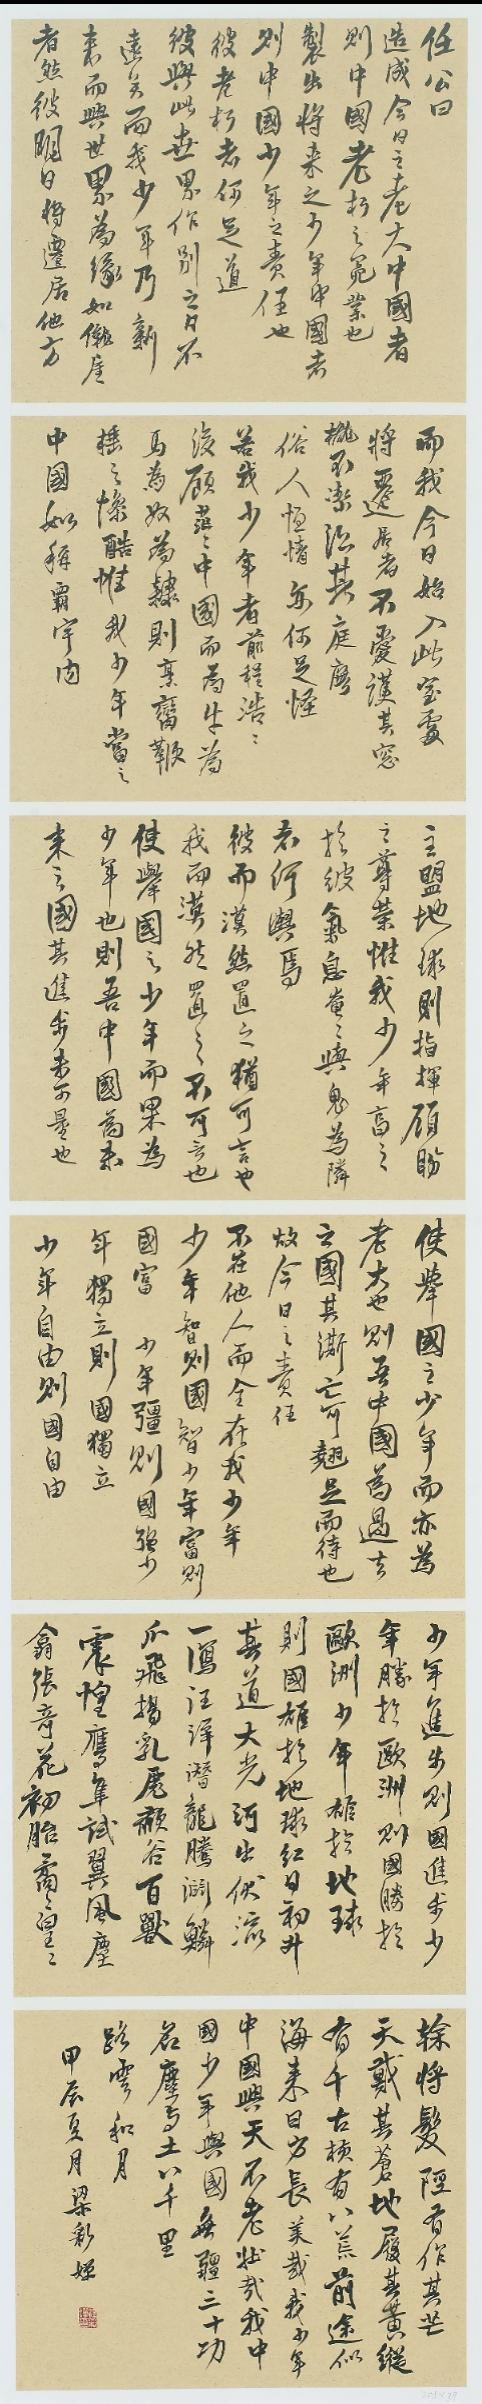 任公曰
造成今日之老大中國者
則中國老朽之冤業也
製出將来之少年中國者
則中國少年之責任也
彼老朽者何足道
彼與此世界作别之日不
遠矣而我少年乃新
来而與世界為緣如僦屋
者然彼明日將遷居他方
而我今日始入此室處
將遷居者不愛護其窓
櫳不潔治其庭廡
俗人恒情亦何足怪
若我少年者前程浩〻
後顧茫〻中國而為牛為
馬為奴為隸則烹臠鞭
棰之慘酷惟我少年當之
中國如稱霸宇内
主盟地球則指揮顧盼
之尊荣惟我少年享之
於彼氣息奄〻與鬼為隣
者何與焉
彼而漠然置之猶可言也
我而漠然置之不可言也
使舉國之少年而果為
少年也則吾中國為未
来之國其進步未可量也
使舉國之少年而亦為
老大也則吾中國為過去
之國其澌亡可翹足而待也
故今日之責任
不在他人而全在我少年
少年智則國智少年富則
國富 少年彊則國強少
年獨立則國獨立
少年自由則國自由
少年進步則國進步少
年勝於歐洲則國勝於
歐洲少年雄於地球
則國雄於地球红日初升
其道大光河出伏流
一瀉汪洋潛龍騰淵鱗
爪飛揚乳虎嘯谷百獸
震惶鷹隼試翼風塵
翕張奇花初胎矞〻皇〻
幹將髮硎有作其芒
天戴其蒼地履其黄縱
有千古橫有八荒前途似
海来日方長美哉我少年
中國與天不老壯哉我中
國少年與國無疆三十功
名塵與土八千里
路雲和月
甲辰夏月梁彩